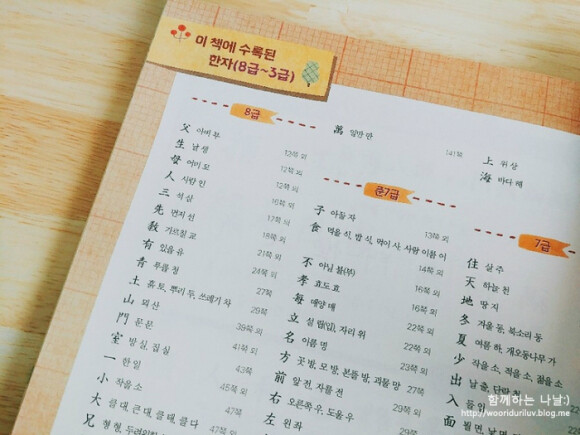 이 책에 수록된
한자(8급~3급)
8급
父 아비 부 12쪽 외
生 날 생 12쪽 외
母 어미 모 12쪽 외
人 사람 인 12쪽 외
三 석 삼 16쪽 외
先 먼저 선 17쪽 외
敎 가르칠 교 18쪽 외
有 있을 유 21쪽 외
靑 푸를 청 24쪽 외
土 흙 토, 뿌리 두, 쓰레기 차 27쪽
山 뫼 산 29쪽
門 문 문 38쪽 외
室 방 실, 집 실 41쪽 외
一 한 일 43쪽
小 작을 소 45쪽 외
大 클 대, 큰 대, 클 태, 클 다 47쪽 외
兄
萬 일만 만 141쪽
준7급
子 아들 자 13쪽 외
食 먹을 식, 밥 식, 먹이 사, 사람 이름 이
14쪽 외
不 아닐 불(부) 16쪽 외
孝 효도 효 16쪽 외
每 매양 매
立 설 립(입), 자리 위 22쪽 외
名 이름 명 22쪽 외
方 곳 방, 모 방, 본뜰 방, 괴물 망
前 앞 전, 자를 전 27쪽
右 오른쪽 우, 도울 우 29쪽 외
左 왼 좌
上 위 상
海 바다 해
7급
住 살 주
天 하늘 천
地 땅 지
冬 겨울 동, 북소리 동
夏 여름 하, 개오동나무 가
少 적을 소, 젊을 소
出 날 출, 단락 척
入 들 입
面
함께하는 나날:)
http://wooriduriluv.blog.me